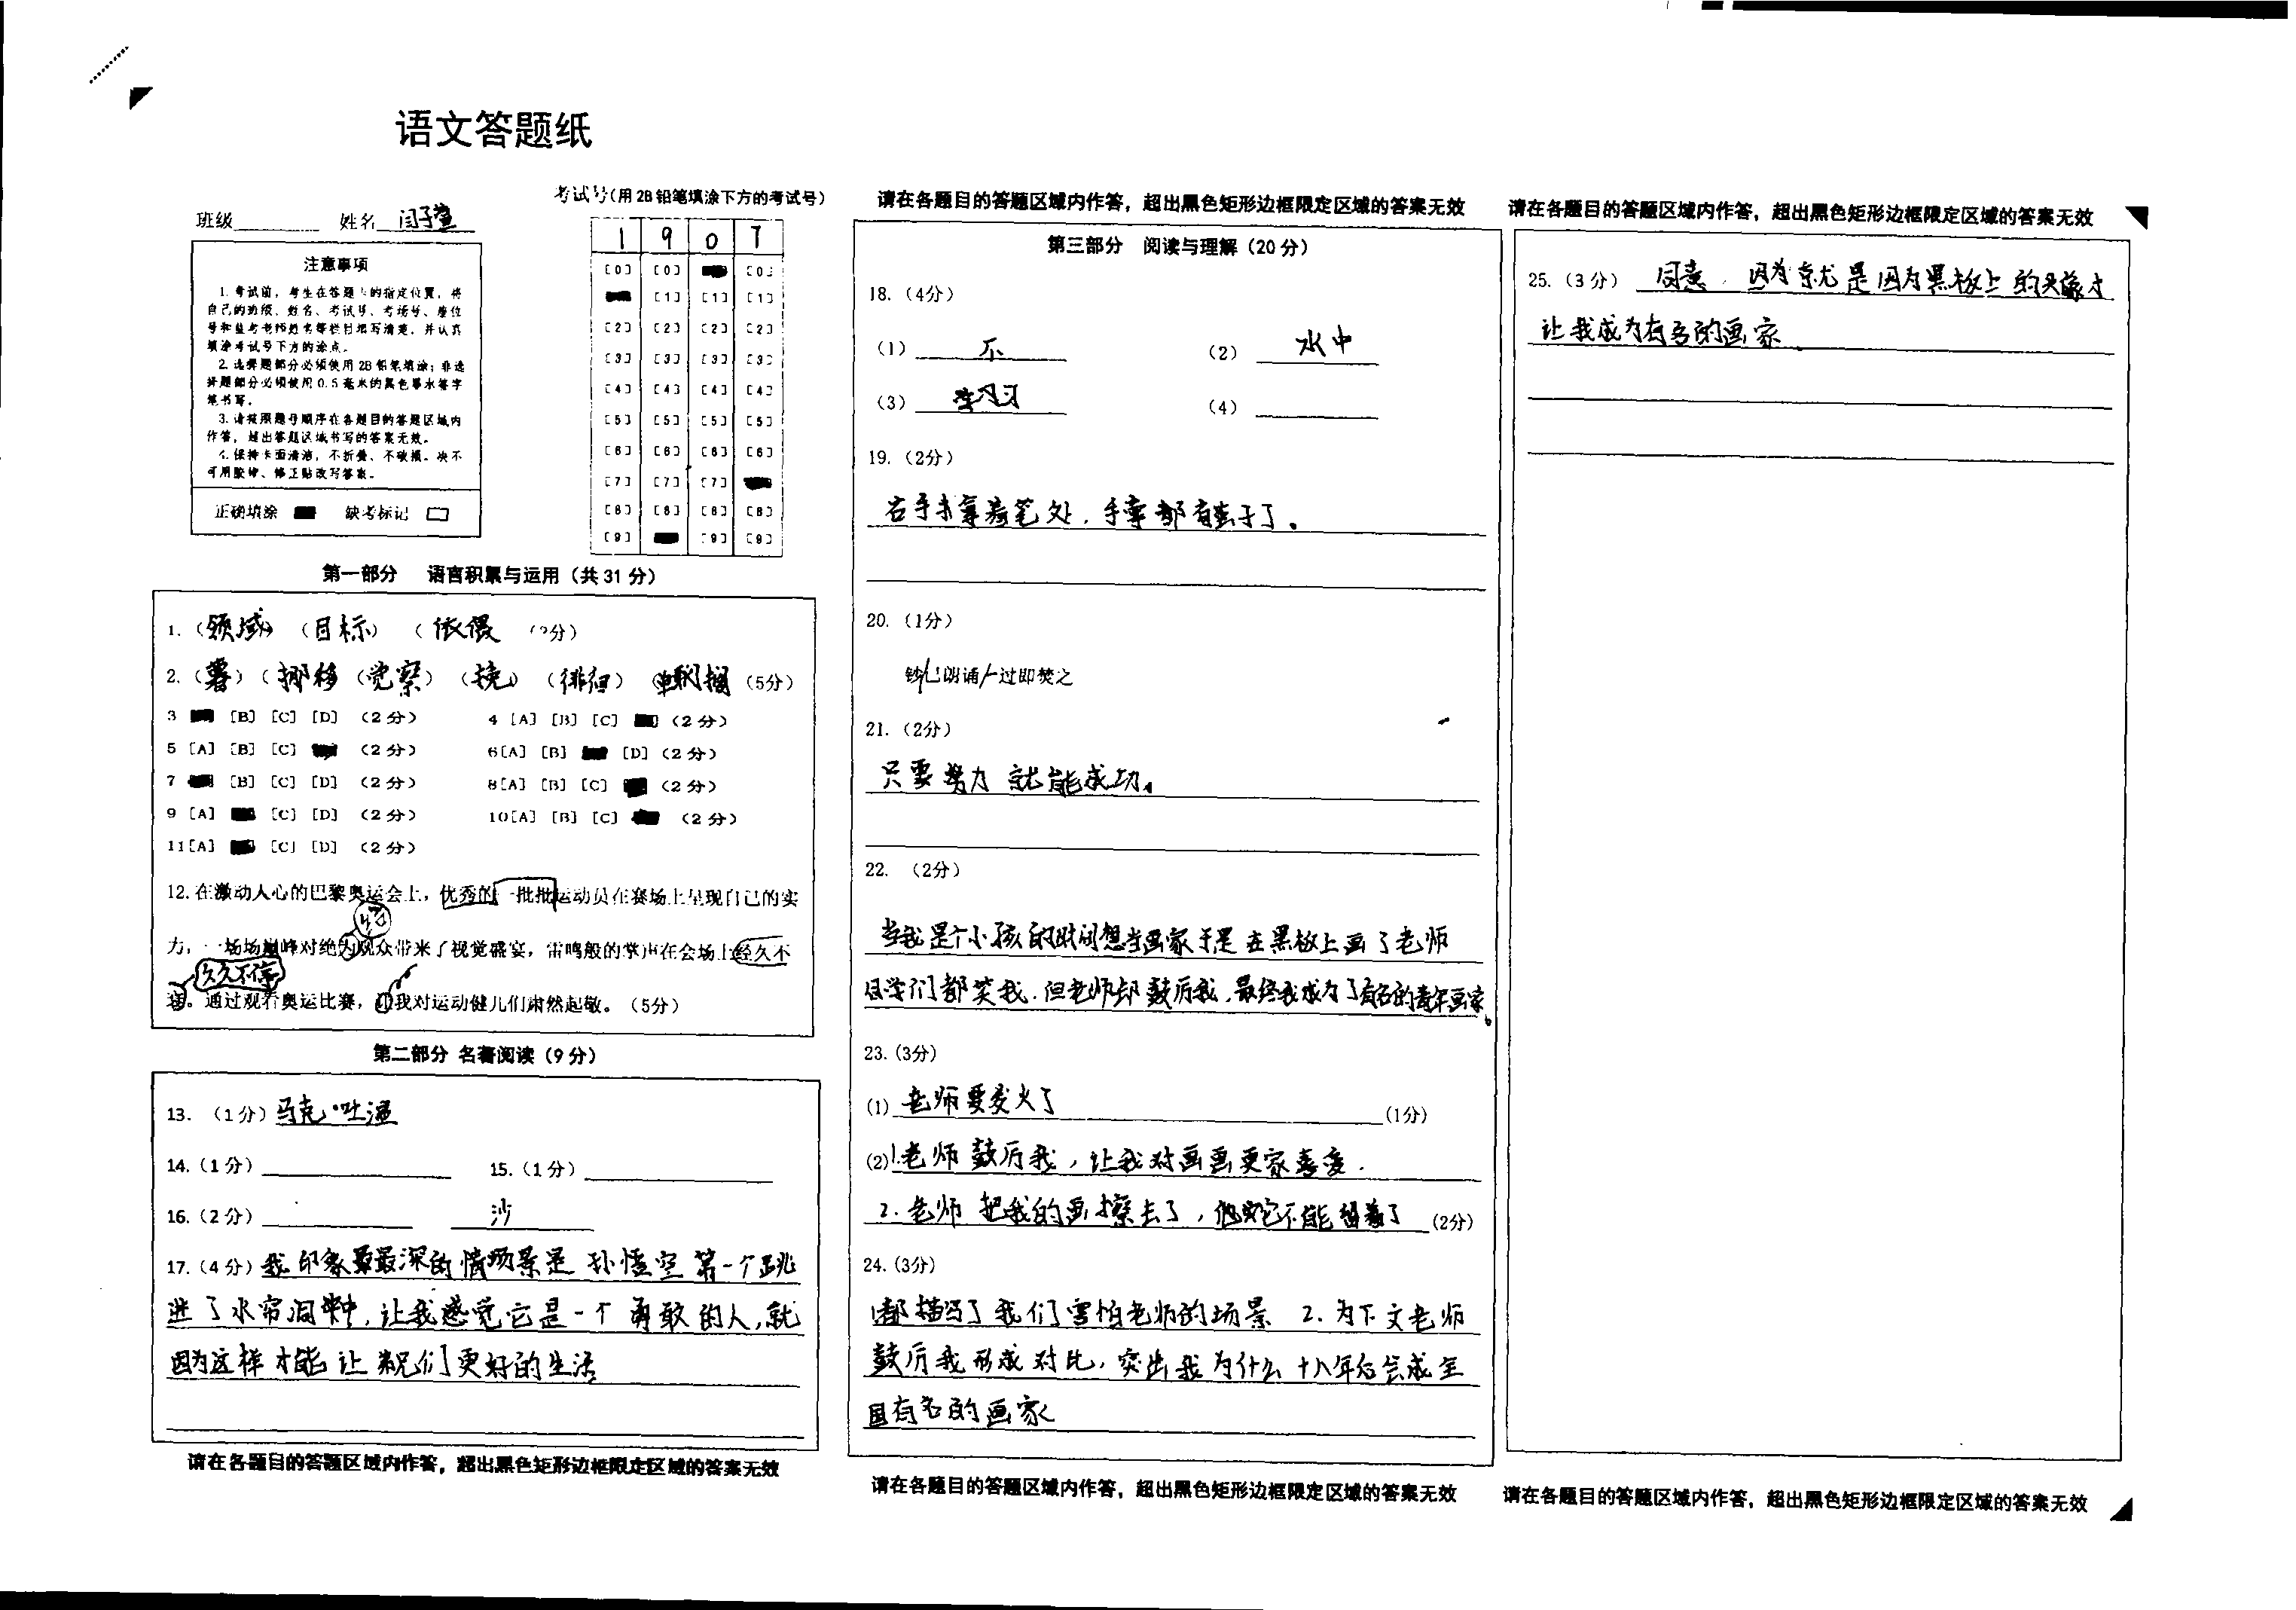 语文答题纸
班级 姓名 闫子萱
考试号(用2B铅笔填涂下方的考试号)
1 9 0 7
[0] [0] [0]
[1] [1] [1]
[2] [2] [2] [2]
[3] [3] [3] [3]
[4] [4] [4] [4]
[5] [5] [5] [5]
[6] [6] [6] [6]
[7] [7] [7]
[8] [8] [8] [8]
[9] [9] [9]
注意事项
1.考试前,考生在答题卡的指定位置,将
自己的班级、姓名、考试号、考场号、座位
号和监考老师姓名等栏目填写清楚,并认真
填涂考试号下方的涂点。
2.选择题部分必须使用2B铅笔填涂;非选
择题部分必须使用0.5毫米的黑色墨水签字
笔书写。
3.请按照题号顺序在各题目的答题区域内
作答,超出答题区域书写的答案无效。
4.保持卡面清洁,不折叠、不破损。决不
可用胶带、修正贴改写答案。
正确填涂 缺考标记
第一部分 语言积累与运用(共31分)
1.(领域)(目标)(依偎 (3分)
2.(薯)(挪移(觉察)(挽)(徘徊) (5分)
3 [B] [C] [D] (2分) 4 [A] [B] [C] (2分)
5 [A] [B] [C] (2分) 6[A] [B] [D] (2分)
7 [B] [C] [D] (2分) 8[A] [B] [C] (2分)
9 [A] [C] [D] (2分) 10[A] [B] [C] (2分)
11[A] [C] [D] (2分)
12.在激动人心的巴黎奥运会上,优秀的一批批运动员在赛场上呈现自己的实
给
力,一场场巅峰对绝为观众带来了视觉盛宴,雷鸣般的掌声在会场上经久不
久久不停
遏。通过观看奥运比赛,让我对运动健儿们肃然起敬。(5分)
第二部分 名著阅读(9分)
13.(1分)马克·吐温
14.(1分) 15.(1分)
16.(2分) 沙
17.(4分)我印象最深的情场景是孙悟空第一个跳
进了水帘洞中,让我感觉它是一个勇敢的人,就
因为这样才能让猴们更好的生活
请在各题目的答题区域内作答,超出黑色矩形边框限定区域的答案无效
请在各题目的答题区域内作答,超出黑色矩形边框限定区域的答案无效
第三部分 阅读与理解(20分)
18.(4分)
(1) 不 (2) 水中
(3) 学习 (4)
19.(2分)
右手拿着笔处,手掌都有茧子了。
20.(1分)
钞已朗诵/一过即焚之
21.(2分)
只要努力就能成功。
22.(2分)
当我是个小孩的时间想当画家于是在黑板上画了老师
同学们都笑我.但老师却鼓厉我,最终我成为了有名的青年画家。
23.(3分)
(1)老师要发火了 (1分)
(2)1.老师鼓厉我,让我对画画更家喜爱.
2.老师把我的画擦去了,他不能留着了 (2分)
24.(3分)
都描写了我们害怕老师的场景 2.为下文老师
鼓厉我形成对比,突出我为什么十八年后会成全
国有名的画家
请在各题目的答题区域内作答,超出黑色矩形边框限定区域的答案无效
请在各题目的答题区域内作答,超出黑色矩形边框限定区域的答案无效
25.(3分) 同意,因为京尤是因为黑板上的头像才
让我成为有名的画家
请在各题目的答题区域内作答,超出黑色矩形边框限定区域的答案无效